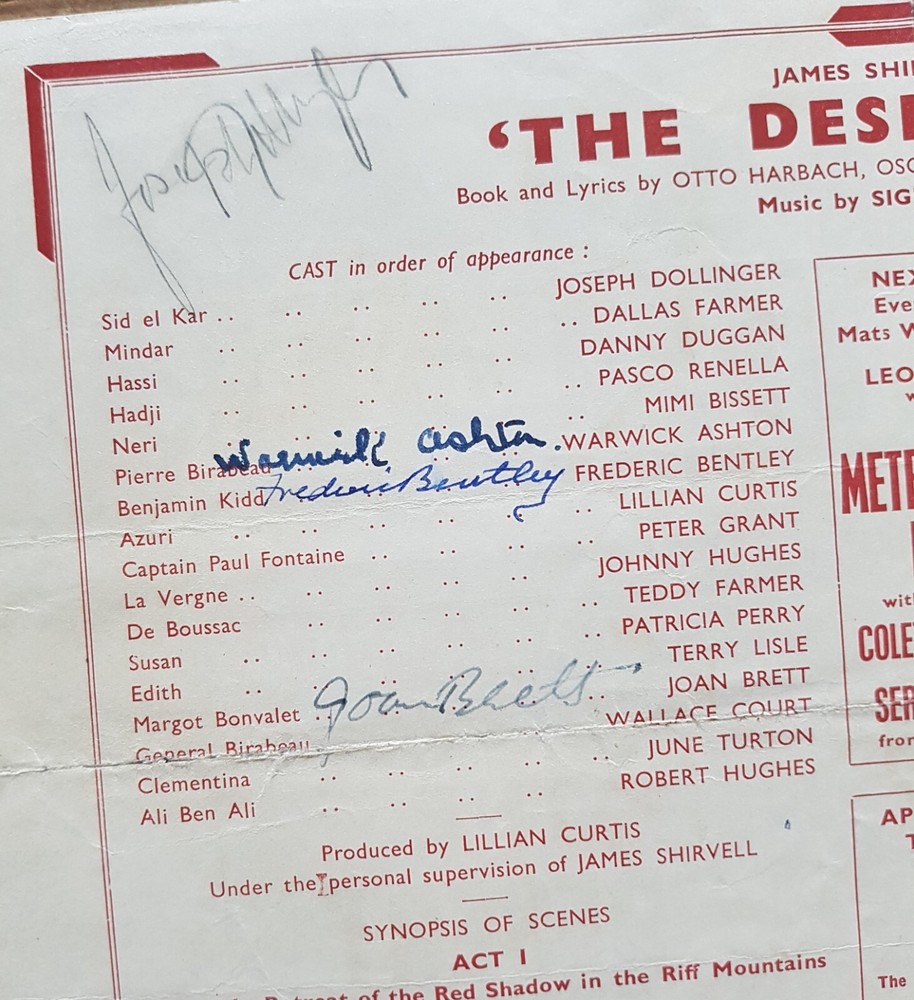 Joseph Dollinger
JAMES SHI
‘THE DESE
Book and Lyrics by OTTO HARBACH, OSC
Music by SIG
CAST in order of appearance :
Sid el Kar .. .. .. .. .. JOSEPH DOLLINGER
Mindar .. .. .. .. .. DALLAS FARMER
Hassi .. .. .. .. DANNY DUGGAN
Hadji .. .. .. .. .. PASCO RENELLA
Neri .. MIMI BISSETT
Pierre Birabeau Warwick Ashton. WARWICK ASHTON
Benjamin Kidd Frederic Bentley FREDERIC BENTLEY
Azuri .. .. .. .. .. LILLIAN CURTIS
Captain Paul Fontaine .. .. .. .. PETER GRANT
La Vergne .. .. .. .. JOHNNY HUGHES
De Boussac .. .. .. .. TEDDY FARMER
Susan .. .. .. .. .. PATRICIA PERRY
Edith .. .. .. .. TERRY LISLE
Margot Bonvalet .. Joan Brett .. JOAN BRETT
General Birabeau WALLACE COURT
Clementina .. .. .. .. JUNE TURTON
Ali Ben Ali .. .. .. .. ROBERT HUGHES
Produced by LILLIAN CURTIS
Under the personal supervision of JAMES SHIRVELL
SYNOPSIS OF SCENES
ACT I
Retreat of the Red Shadow in the Riff Mountains
NEX
Eve
Mats W
LEO
w
METR
with
COLE
SER
from
AP
T
The